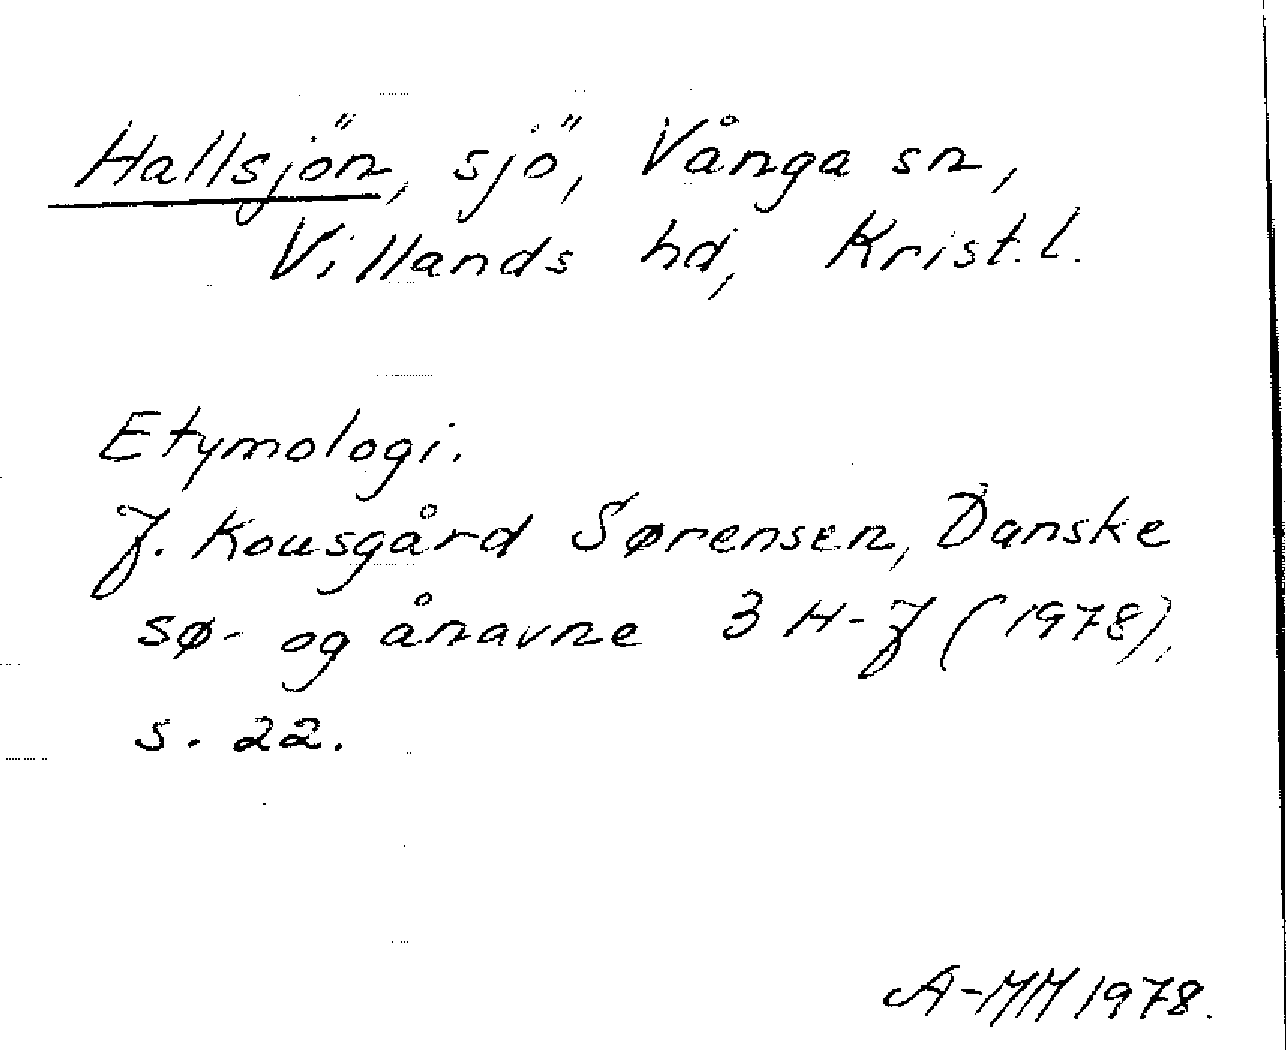 Hallsjön, sjö, Vånga sn,
Villands hd, Krist. l.
Etymologi.
J. Kousgård Sørensen, Danske
sø- og ånavne 3 H-J (1978),
s. 22.
A-MH 1978.